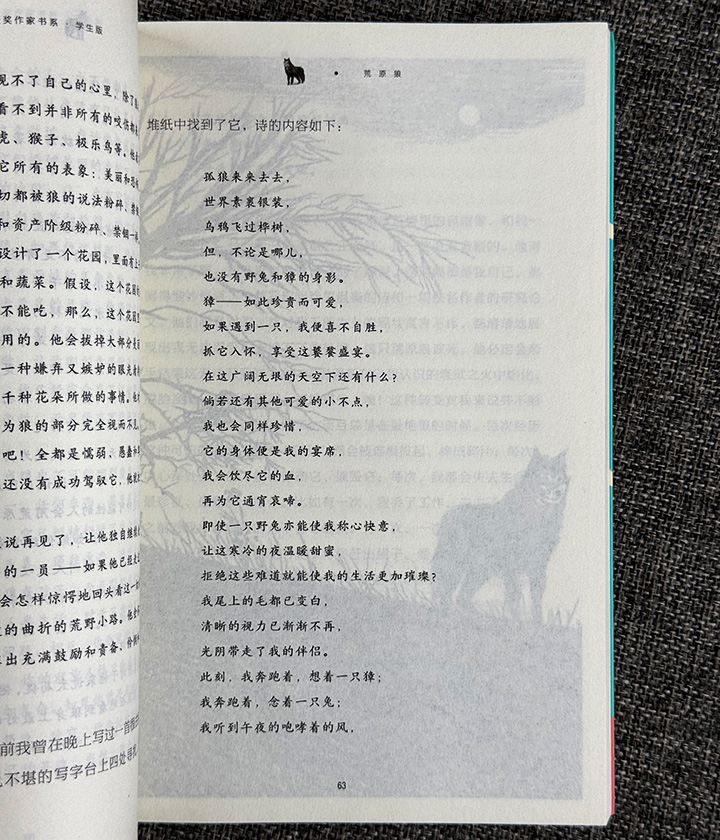 奖作家书系·学生版
现不了自己的心里，除了
看不到并非所有的咬伤都
虎、猴子、极乐鸟等，
它所有的表象：美丽和
切都被狼的说法粉碎、禁
和资产阶级粉碎、禁锢一
设计了一个花园，里面有上
和蔬菜。假设，这个花园
不能吃，那么，这个花园
用的。他会拔掉大部分
一种嫌弃又嫉妒的眼光看
千种花朵所做的事情。他
为狼的部分完全视而不见，
吧！全都是懦弱、愚蠢和
还没有成功驾驭它，他
说再见了，让他独自继续
的一员——如果他已经
会怎样惊愕地回头看这一
的曲折的荒野小路。他会
出充满鼓励和责备、怜悯
前我曾在晚上写过一首
不堪的写字台上四处寻
荒原狼
堆纸中找到了它，诗的内容如下：
孤狼来来去去，
世界素裹银装，
乌鸦飞过桦树，
但，不论是哪儿，
也没有野兔和獐的身影。
獐——如此珍贵而可爱，
如果遇到一只，我便喜不自胜，
抓它入怀，享受这饕餮盛宴。
在这广阔无垠的天空下还有什么？
倘若还有其他可爱的小不点，
我也会同样珍惜，
它的身体便是我的宴席，
我会饮尽它的血，
再为它通宵哀啼。
即使一只野兔亦能使我称心快意，
让这寒冷的夜温暖甜蜜，
拒绝这些难道就能使我的生活更加璀璨？
我尾上的毛都已变白，
清晰的视力已渐渐不再，
光阴带走了我的伴侣。
此刻，我奔跑着，想着一只獐；
我奔跑着，念着一只兔；
我听到午夜的咆哮着的风，
63